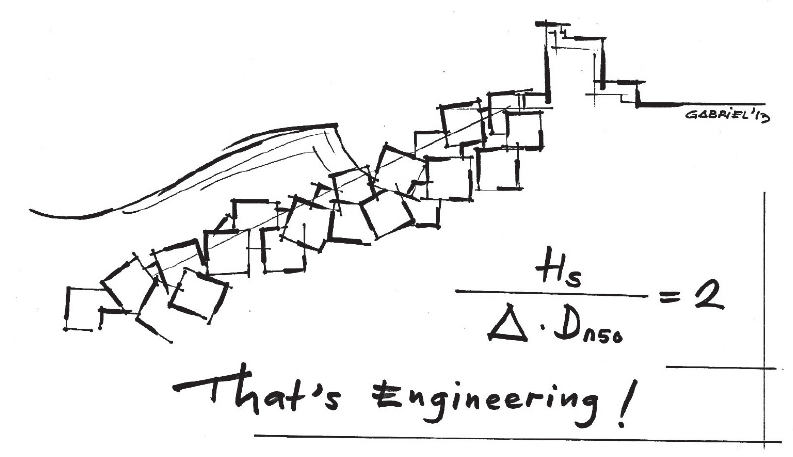 GABRIEL'13
Hs
———— = 2
Δ · Dn50
That's Engineering!